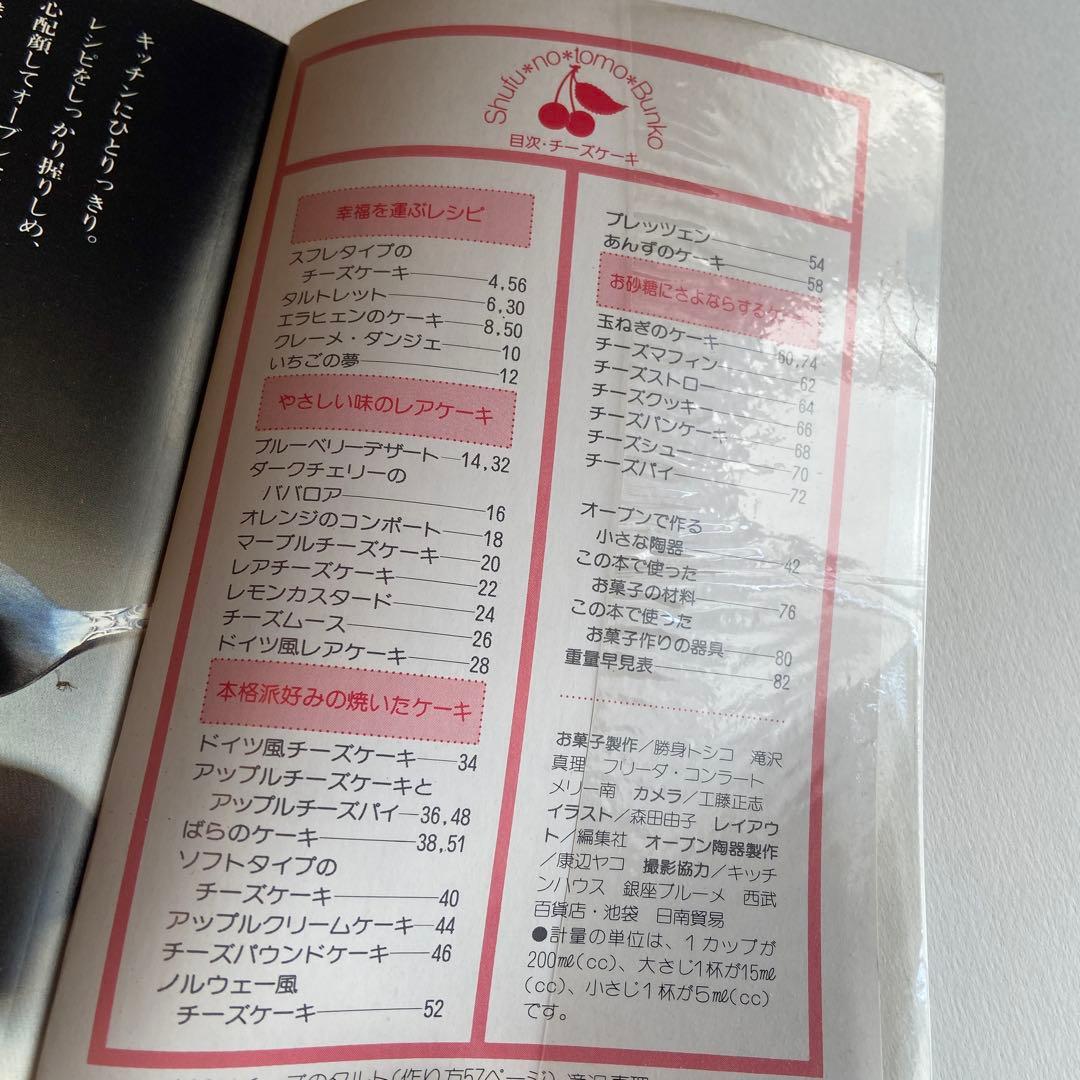 キッチンにひとりっきり。
レシピをしっかり握りしめ、
心配顔してオーブン
Shufu*no*tomo*Bunko
目次・チーズケーキ
幸福を運ぶレシピ
スフレタイプの
チーズケーキ 4,56
タルトレット 6,30
エラヒェンのケーキ 8,50
クレーメ・ダンジェ 10
いちごの夢 12
やさしい味のレアケーキ
ブルーベリーデザート 14,32
ダークチェリーの
ババロア 16
オレンジのコンポート 18
マーブルチーズケーキ 20
レアチーズケーキ 22
レモンカスタード 24
チーズムース 26
ドイツ風レアケーキ 28
本格派好みの焼いたケーキ
ドイツ風チーズケーキ 34
アップルチーズケーキと
アップルチーズパイ 36,48
ばらのケーキ 38,51
ソフトタイプの
チーズケーキ 40
アップルクリームケーキ 44
チーズパウンドケーキ 46
ノルウェー風
チーズケーキ 52
プレッツェン 54
あんずのケーキ 58
お砂糖にさよならするケーキ
玉ねぎのケーキ 60,74
チーズマフィン 62
チーズストロー 64
チーズクッキー 66
チーズパンケーキ 68
チーズシュー 70
チーズパイ 72
オーブンで作る
小さな陶器 42
この本で使った
お菓子の材料 76
この本で使った
お菓子作りの器具 80
重量早見表 82
お菓子製作/勝身トシコ 滝沢
真理 フリーダ・コンラート
メリー南 カメラ/工藤正志
イラスト/森田由子 レイアウ
ト/編集社 オーブン陶器製作
/康辺ヤコ 撮影協力/キッチ
ンハウス 銀座ブルーメ 西武
百貨店・池袋 日南貿易
●計量の単位は、1カップが
200㎖(cc)、大さじ1杯が15㎖
(cc)、小さじ1杯が5㎖(cc)
です。
のタルト(作り方57ページ) 滝沢真理